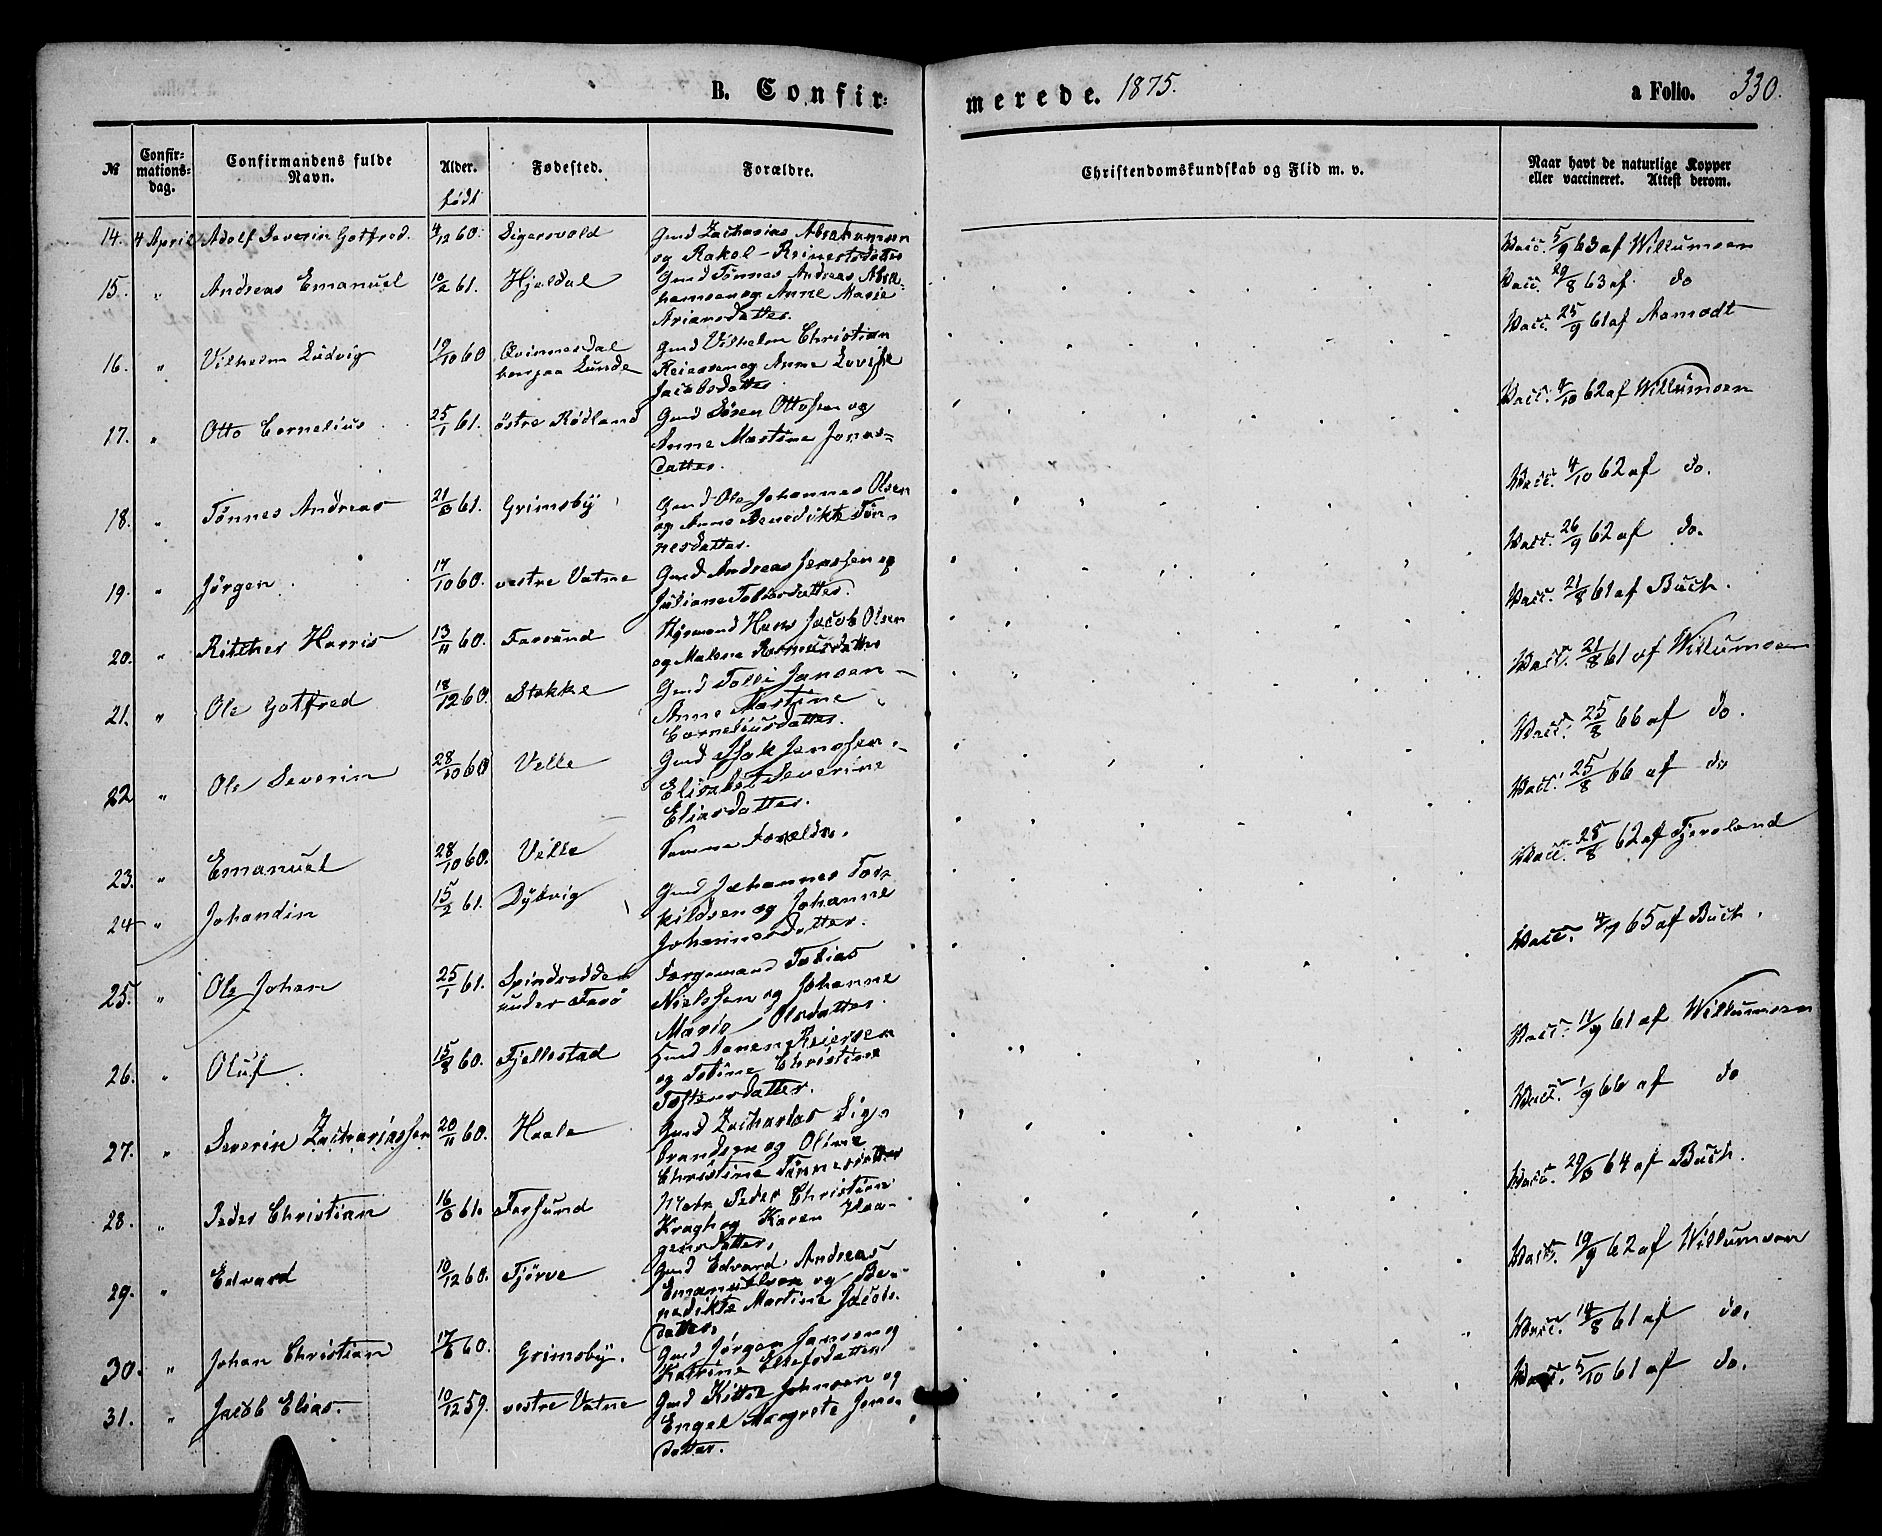 B. Confir-
merede. 1875.
a Folio. 330.
№
Confir-
mations-
dag.
Confirmandens fulde
Navn.
Alder.
født
Fødested.
Forældre.
Christendomskundskab og Flid m. v.
Naar havt de naturlige Kopper
eller vaccineret. Attest derom.
14. 4 April Adolf Severin Gotfred. 4/12 60. Sigersvold Gmd Zacharias Abrahamsen
og Rakel Reinertsdatter
Vacc. 5/9 63 af Willumsen
15. " Andreas Emanuel 10/2 61. Hjeldal Gmd Tønnes Andreas Abra-
hamsen og Anne Marie
Ariansdatter.
Vacc. 29/8 63 af do
16. " Vilhelm Ludvig 19/10 60 Qvinnesdal
her paa Lunde
Gmd Vilhelm Christian
Reiersen og Anne Lovise
Jacobsdatter
Vacc. 25/9 61 af Aamodt
17. " Otto Cornelius 25/1 61. østre Rødland Gmd Sören Ottosen og
Anne Martine Jonas-
datter.
Vacc. 4/10 62 af Willumsen
18. " Tønnes Andreas 21/3 61. Grimsby Gmd Ole Johannes Olsen
og Anne Benedikte Tøn-
nesdatter.
Vacc. 4/10 62 af do.
19. " Jörgen 17/10 60. vestre Vatne Gmd Andreas Jenssen og
Juliane Tobiasdatter.
Vacc. 26/9 62 af do.
20. " Ritcher Harris 13/11 60. Farsund Styrmand Hans Jacob Olsen
og Malene Rasmusdatter
Vacc. 21/8 61 af Buch.
21. " Ole Gotfred 18/12 60. Stokke Gmd Tolli Jansen
Anne Martine
Corneliusdatter.
Vacc. 21/8 61 af Willumsen
22 " Ole Severin 28/10 60 Velle Gmd Isak Jonassen
Elisabet Severine
Eliasdatter.
Vacc. 25/8 66 af do.
23. " Emanuel 28/10 60. Velle Samme Forældre.
Vacc. 25/8 66 af do
24 " Johandin 15/2 61. Dybvig Gmd Johannes Tor-
kildsen og Johanne
Johannesdatter.
Vacc. 25/8 62 af Fjeroland
25. " Ole Johan 25/1 61. Spindsodden
under Farø
Færgemand Tobias
Nielssen og Johanne
Marie Olsdatter.
Vacc. 4/7 65 af Buch.
26. " Oluf 15/8 60. Fjellestad Gmd Aanen Reiersen
og Tobine Christine
Tostensdatter.
Vacc. 11/9 61 af Willumsen
27. " Severin Zachariassen 20/11 60. Haale Gmd Zacharias Sig-
brandsen og Oline
Christine Tønnesdatter
Vacc. 1/9 66 af do
28. " Peder Christian 16/3 61. Farsund Matr. Peder Christian
Kragh og Karen Haa-
gensdatter.
Vacc. 29/3 64 af Buch.
29. " Edvard 10/12 60. Tjörve Gmd Edvard Andreas
Emanuelsen og Be-
nedikte Martine Jacobs-
datter.
Vacc. 19/9 62 af Willumsen
30. " Johan Christian 17/8 60. Grimsby. Gmd Jørgen Jansen og
Katrine Ellefsdatter
Vacc. 14/8 61 af do.
31. " Jacob Elias. 10/12 59. vestre Vatne Gmd Kittel Johnsen og
Engel Margrete Jens-
datter.
Vacc. 5/10 61 af do.